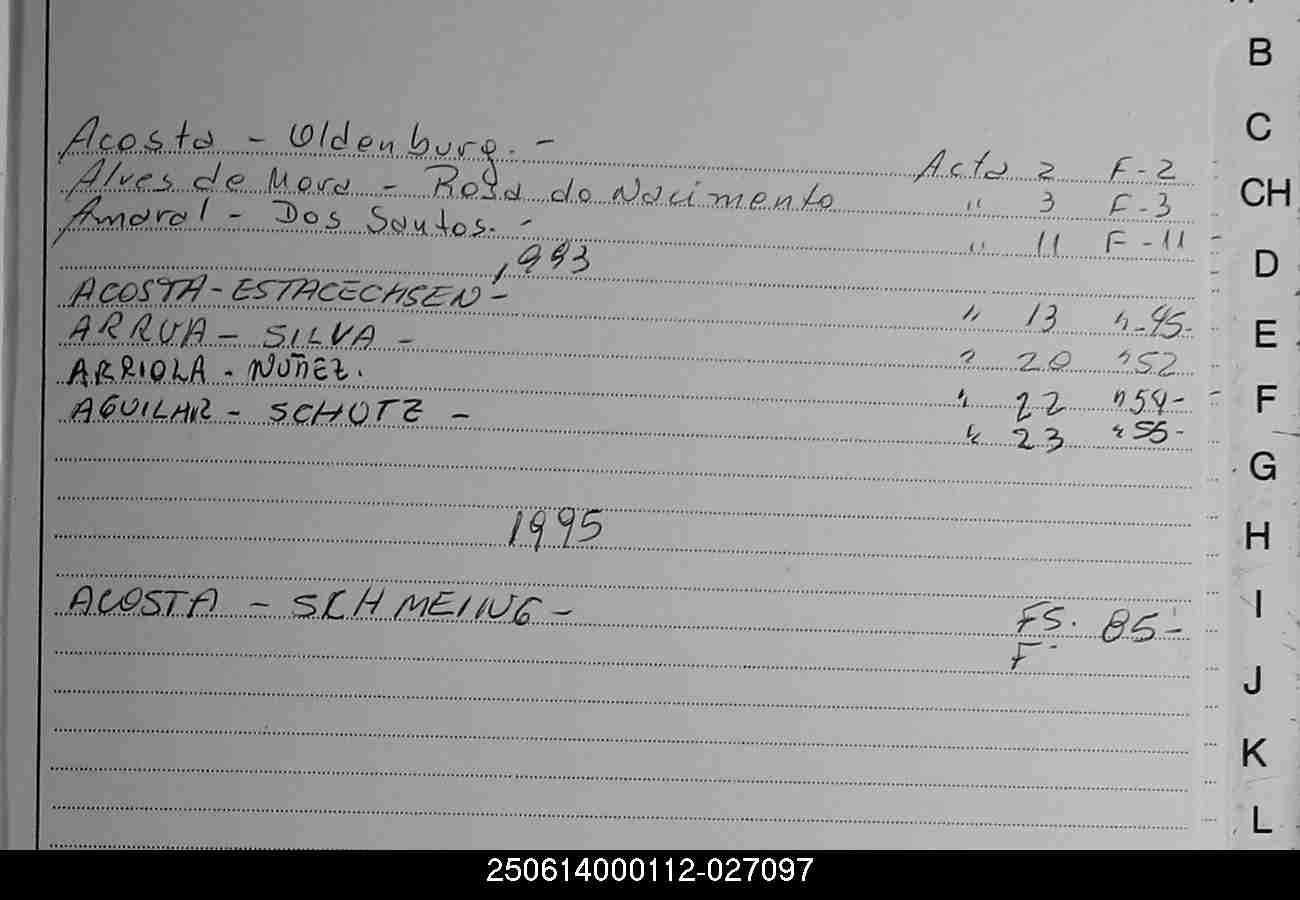 B
C
CH
D
E
F
G
H
I
J
K
L
Acosta - Oldenburg. - Acta 2 F-2
Alves de Mora - Rosa do Nacimento " 3 F-3
Amaral - Dos Santos. - " 11 F-11
1993
ACOSTA - - " 13 "-45-
ARRUA - SILVA - " 20 "52
ARRIOLA - NUÑEZ. " 22 "54-
AGUILAR - SCHOTZ - " 23 "55-
1995
ACOSTA - SCHMEING - FS. 85-
F
250614000112-027097